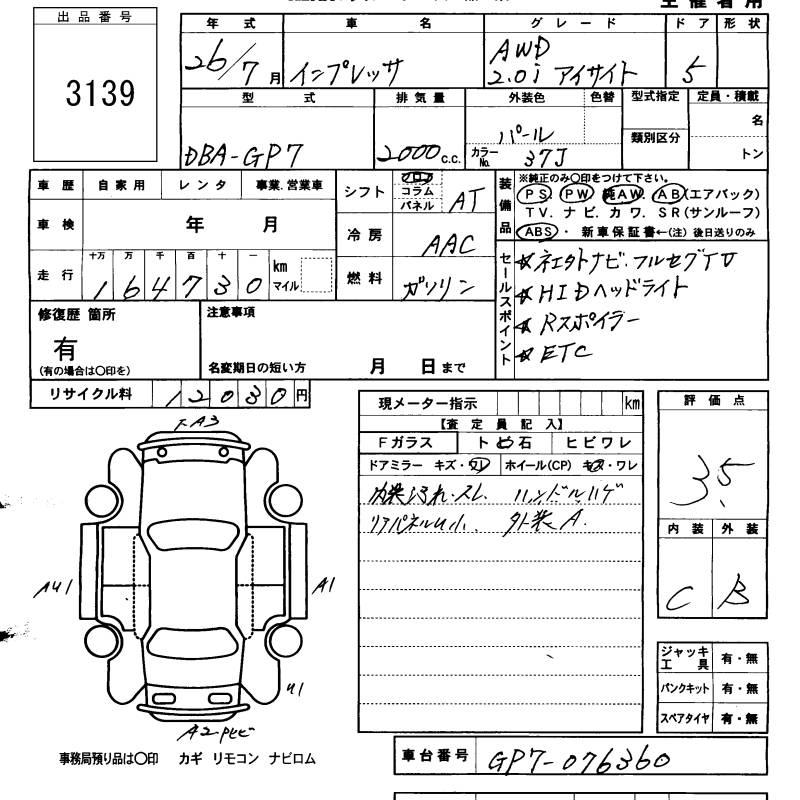 主催者用
出品番号
3139
年式 車名 グレード ドア 形状
26/7月 インプレッサ AWD 2.0i アイサイト 5
型式 排気量 外装色 色替 型式指定 定員・積載
DBA-GP7 2000 c.c. パール カラーNo. 37J 類別区分 名 トン
車歴 自家用 レンタ 事業.営業車
車検 年 月
走行 十万 万 千 百 十 一 km マイル
1 6 4 7 3 0
シフト フロア コラム パネル AT
冷房 AAC
燃料 ガソリン
装備品
※純正のみ〇印をつけて下さい。
PS. PW 純AW. AB(エアバック)
TV. ナビ. カワ. SR(サンルーフ)
ABS・ 新車保証書←(注)後日送りのみ
セールスポイント
☆ネエタトナビ.フルセグTV
☆HIDヘッドライト
☆Rスポイラー
☆ETC
修復歴 箇所
有
(有の場合は〇印を)
注意事項
名変期日の短い方 月 日まで
リサイクル料 12030円
現メーター指示 km
【査定員記入】
Fガラス トビ石 ヒビワレ
ドアミラー キズ・ワレ ホイール(CP) キズ・ワレ
内装汚れ・スレ ハンドルハゲ
リアパネルU小. 外装A.
評価点
3.5
内装 外装
C B
FA3
AU1
A1
U1
A2
ジャッキ工具 有・無
パンクキット 有・無
スペアタイヤ 有・無
事務局預り品は〇印 カギ リモコン ナビロム
車台番号 GP7-076360